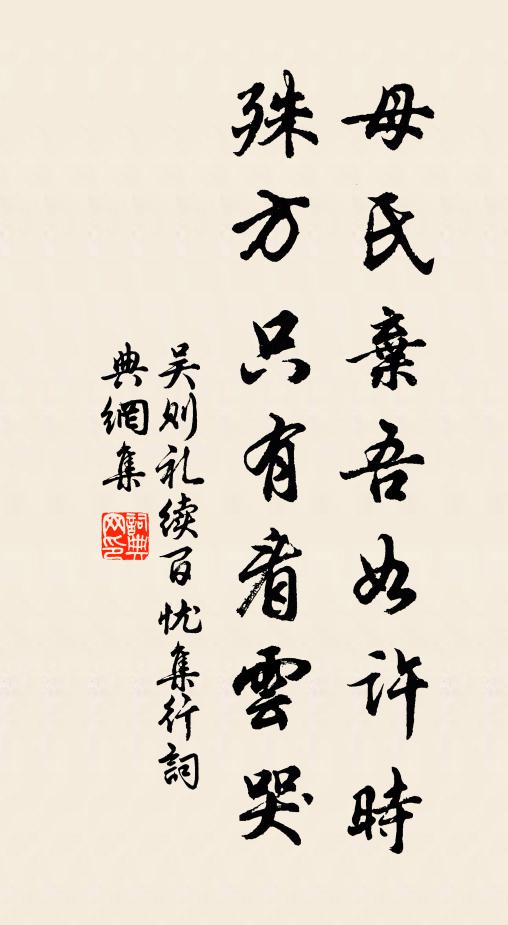 母氏棄吾如許時
殊方只有看雲哭
吴则礼续百忧集行詞
典網集
詞典网印